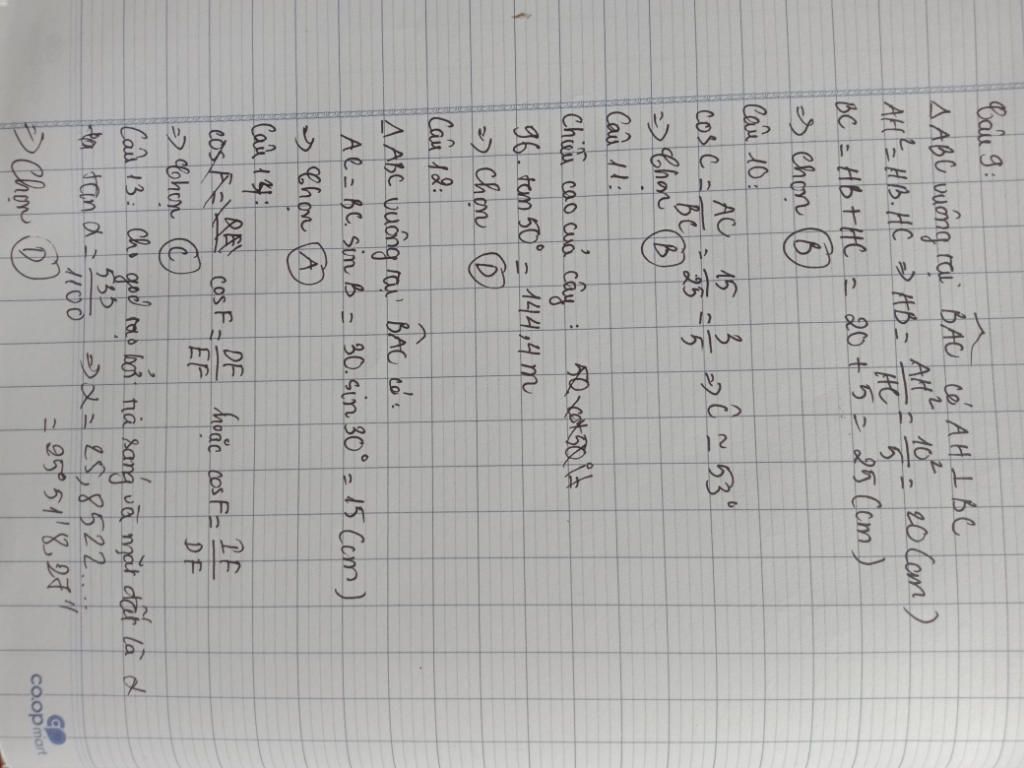 Câu 9:
∆ ABC vuông tại BAC có AH ⊥ BC
AH² = HB.HC ⇒ HB = AH²/HC = 10²/5 = 20 (cm)
BC = HB + HC = 20 + 5 = 25 (cm)
⇒ Chọn B
Câu 10:
cos C = AC/BC = 15/25 = 3/5 ⇒ Ĉ ~ 53°
⇒ Chọn B
Câu 11:
Chiều cao của cây:
96. tan 50° = 144,4 m
⇒ Chọn D
Câu 12:
∆ ABC vuông tại BAC có:
AC = BC. sin B = 30. sin 30° = 15 (cm)
⇒ Chọn A
Câu 14:
cos F = DF/EF hoặc cos F = IF/DF
⇒ Chọn C
Câu 13: Cho góc tạo bởi tia sáng và mặt đất là α
tan α = 533/1100 ⇒ α = 25,8522...
= 25° 51' 8.27"
⇒ Chọn D
coopmart